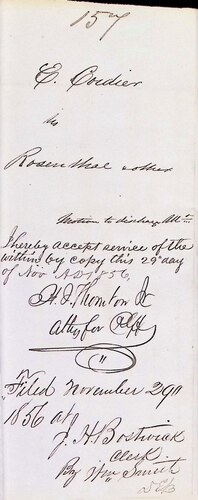 157
E. Cordier
vs
Rosenthal & others
Motion to discharge Att
I hereby accept service of the
within by copy this 29 day
of Nov AD 1856,
H. I. Thornton Jr
atty for Plff
"
Filed November 29"
1856 at
J. H. Bostwick
Clerk
By Wm Smith